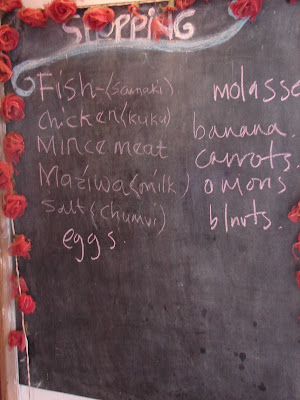 SHOPPING
Fish-(samaki)
chicken(kuku)
Mince meat
Maziwa(milk)
Salt(chumvi)
eggs.
molasse
banana.
carrots.
onions
b/nuts.